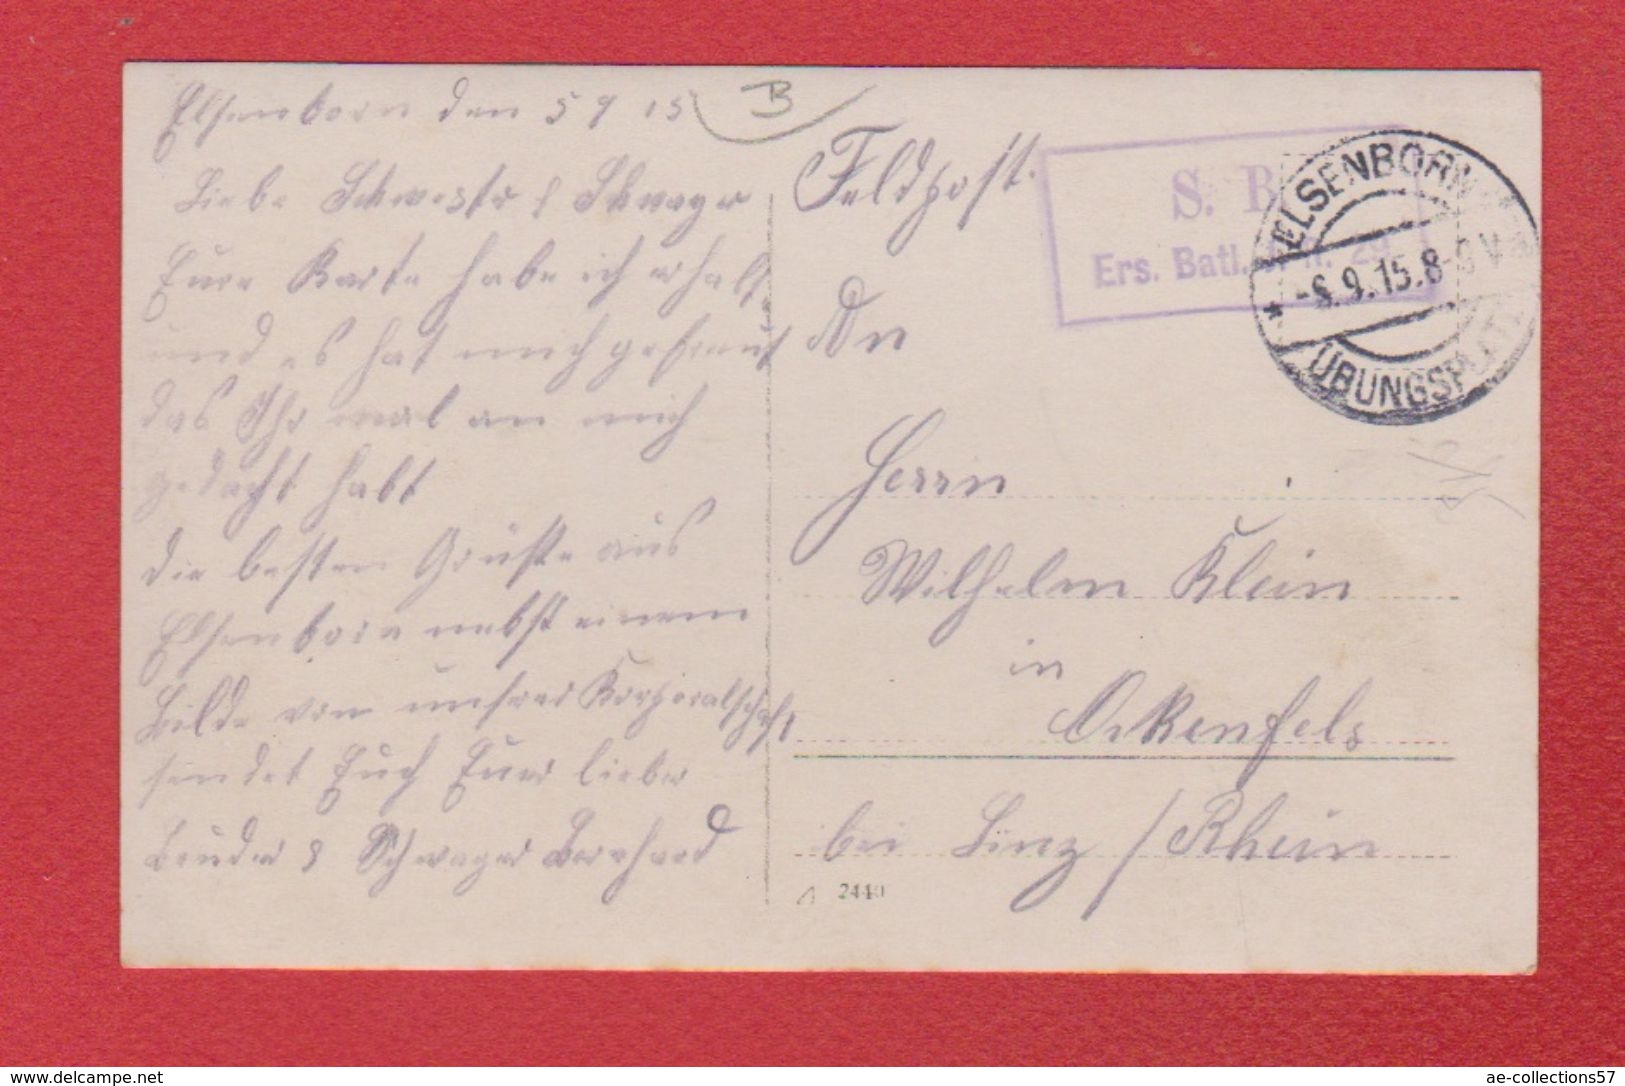 Elsenborn den 5 9 15
B
Liebe Schwester & Schwager
Eure Karte habe ich erhalt.
und es hat mich gefreut
das Ihr mal an mich
gedacht habt
die besten Grüße aus
Elsenborn nebst einem
Bilde von unsrer Korporalschaft
sendet Euch Euer lieber
Bruder & Schwager Bernhard
Feldpost.
S. B.
Ers. Batl. J. R. 29
ELSENBORN
-6.9.15.8-9V
* ÜBUNGSPLATZ
An
Herrn
Wilhelm Klein
in
Ockenfels
bei Linz / Rhein
2440
www.delcampe.net
ae-collections57